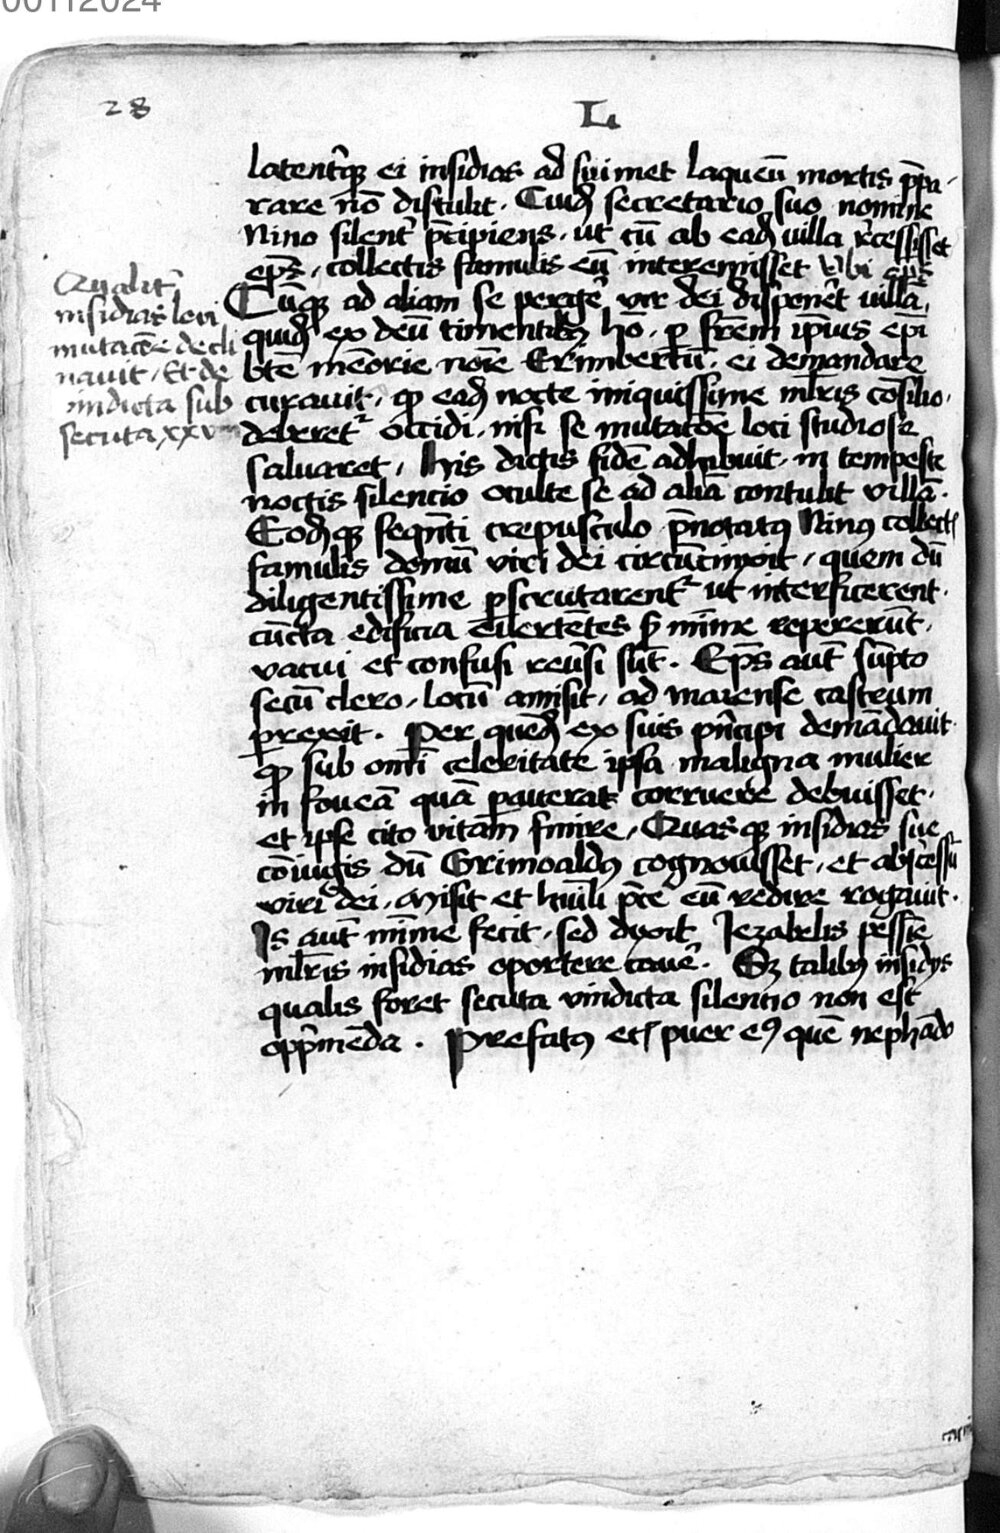 00112024
28
L
latent̄q̄ ei insidias ad̄ suimet laqueū mortis p̄pa-
rare nō distulit. Cuid̄ secretario suo nomine
Nino silent̄ p̄cipiens, ut cū ab ead̄ villa r̄cessisset
ep̄s, collectis famulis eū interemisset Vbi ep̄s
Cūq̄ ad aliam se perḡe vir dei dispen̄et villā,
quid̄ ex deū timentib9 hō, p̄ fr̄em ip̄ius ep̄i
bt̄e mēorie noīe Erimbertū, ei demandare
curavit, q̄ ead̄ nocte iniquissime ml̄ris cōsilio,
deberet᷑ occidi, nisi se mutacōe loci studiose
salvaret, his dictis fidē adhibuit, in tempeste
noctis silencio oculte se ad aliā contulit villā.
Eod̄q̄ seqn̄ti crepusculo p̄notat9 Nin9 collect̄
famulis domū viri dei circūcinxit, quem dū
diligentissime p̄scrutarent᷑ ut interficerent.
cūcta edificia evertētes s̄ mīme repererūt,
vacui et confusi reūsi sūt. Ep̄s aut̄ sūpto
secū clero, locū amisit, ad maiense castrum
p̄rexit. Per quēd̄ ex suis p̄ncipi demādavit
q̄ sub om̄i celeritate ipsa maligna mulier
in foveā quā paverat corruere debuisset.
et ipse cito vitam finire, Quas q̄ insidias sue
cōiugis dū Grimoald9 cognovisset, et abscessū
viri dei, misit et hūili p̄ce eū redire rogavit.
Is aut̄ mīme fecit, sed dixit Iezabelis pessīe
ml̄ris insidias oportere cavē. Sz talib9 insidijs
qualis foret secuta vindicta silentio non est
opp̄mēda. Prefat9 et̄ puer e9 quē nephādo
Qualit᷑
insidias levi
mutacōe decli
navit, Et de
vindicta sub
secuta xxvii